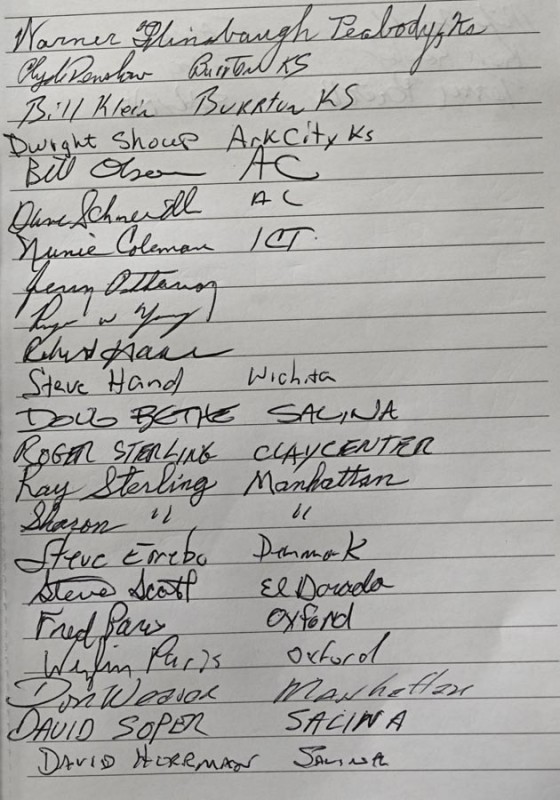 Warner Flinsbaugh Peabody, Ks
Clyde Denshaw Burton KS
Bill Klein Burrton KS
Dwight Shoup Ark City Ks
Bill Olson AC
Dave Schmeidl AC
Nunie Coleman ICT
Jerry Ottaway
Roger W Young
Robert Haas
Steve Hand Wichita
DOUG BETHE SALINA
ROGER STERLING CLAY CENTER
Ray Sterling Manhattan
Sharon " "
Steve Denmark
Steve Scott El Dorado
Fred Paris Oxford
Paris Oxford
Don Weaver Manhattan
DAVID SOPER SALINA
DAVID HERRMAN SALINA